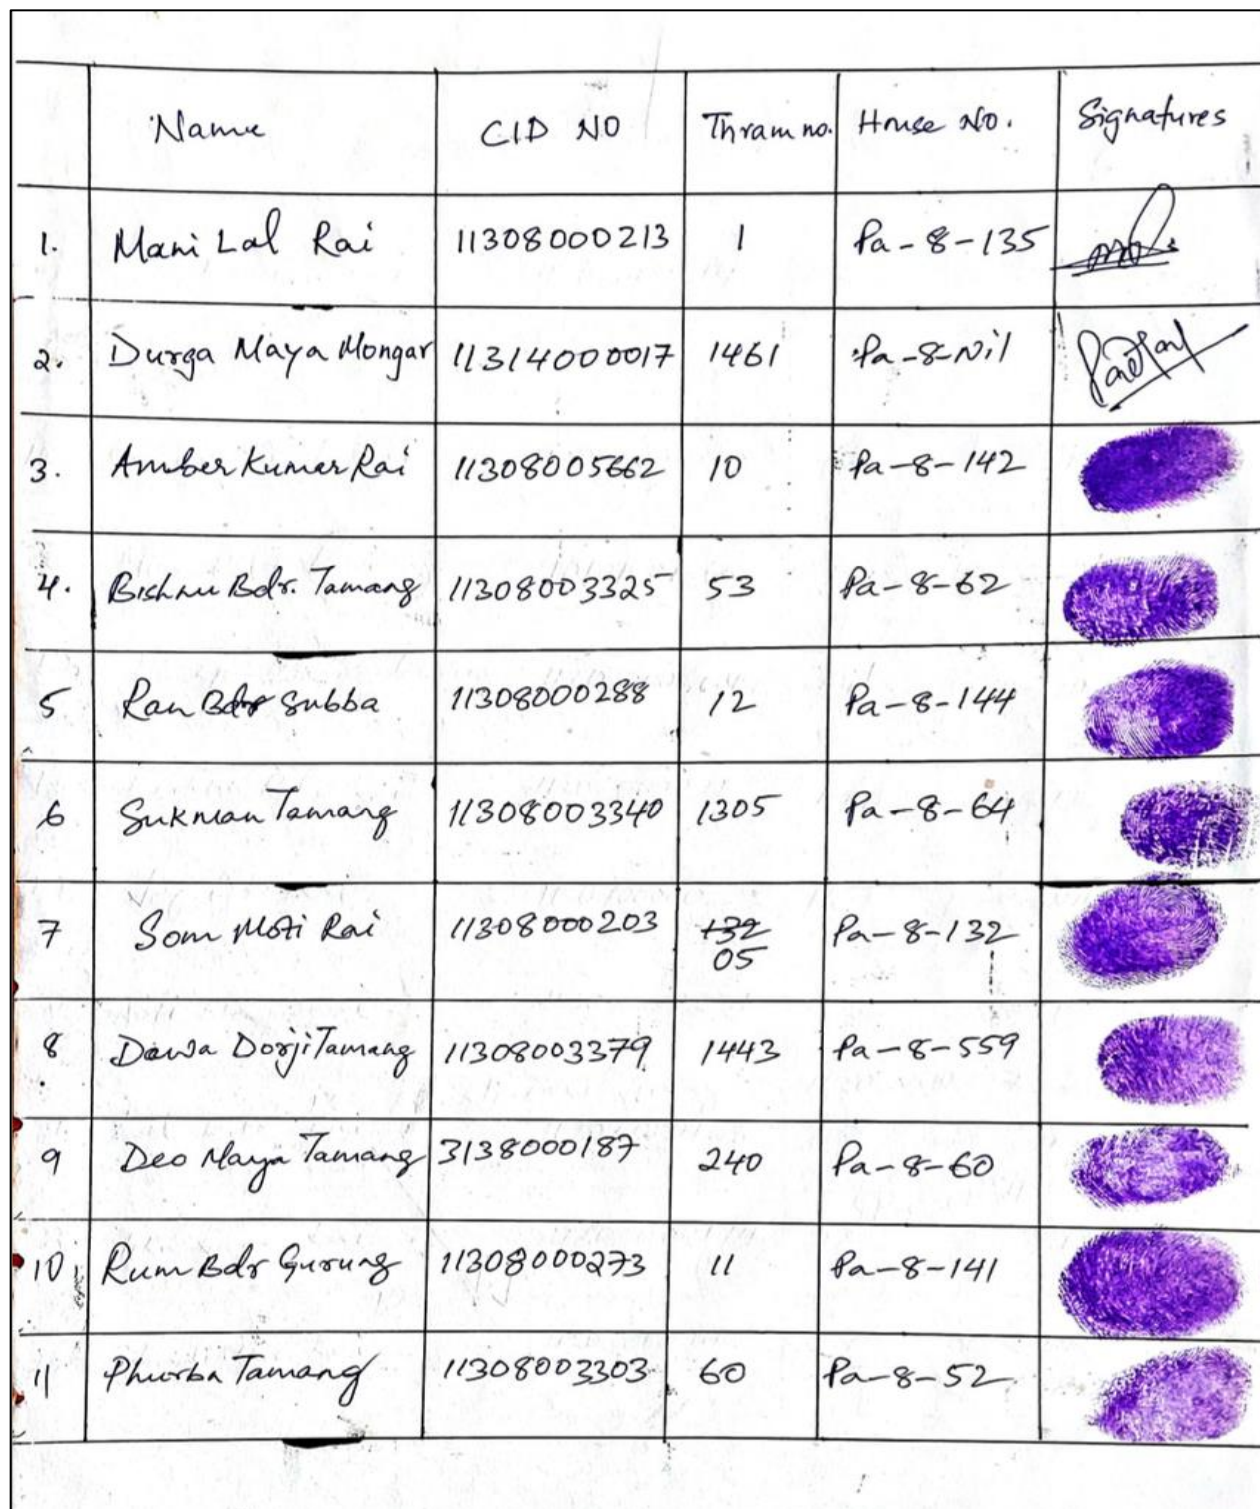 Name CID NO Thram no. House No. Signatures
1. Mani Lal Rai 11308000213 1 Pa-8-135
2. Durga Maya Mongar 11314000017 1461 Pa-8-Nil
3. Amber Kumar Rai 11308005662 10 Pa-8-142
4. Bishnu Bdr. Tamang 11308003325 53 Pa-8-62
5 Ran Bdr Subba 11308000288 12 Pa-8-144
6 Sukman Tamang 11308003340 1305 Pa-8-64
7 Som Moti Rai 11308000203 132 Pa-8-132
05
8 Dawa Dorji Tamang 11308003379 1443 Pa-8-559
9 Deo Maya Tamang 3138000187 240 Pa-8-60
10 Rum Bdr Gurung 11308000273 11 Pa-8-141
11 Phurba Tamang 11308003303 60 Pa-8-52